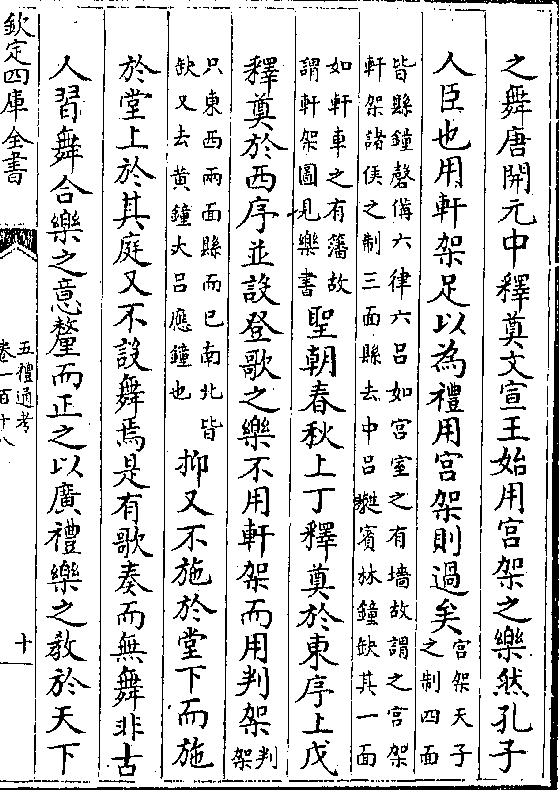 之舞唐開元中釋奠文宣王始用宫架之樂然孔子
人臣也用軒架足以為禮用宫架則過矣宫架天子之制四面
皆縣鐘磬備六律六吕如宫室之有墻故謂之宫架
軒架諸侯之制三面縣去中吕蕤賓林鐘缺其一面
如軒車之有藩故
謂軒架圖見樂書聖朝春秋上丁釋奠於東序上戊
釋奠於西序並設登歌之樂不用軒架而用判架判架
只東西兩面縣而已南北皆
缺又去黄鐘大吕應鐘也抑又不施於堂下而施
於堂上於其庭又不設舞焉是有歌奏而無舞非古
人習舞合樂之意釐而正之以廣禮樂之教於天下
欽定四庫全書
五禮通考
卷一百十八
十